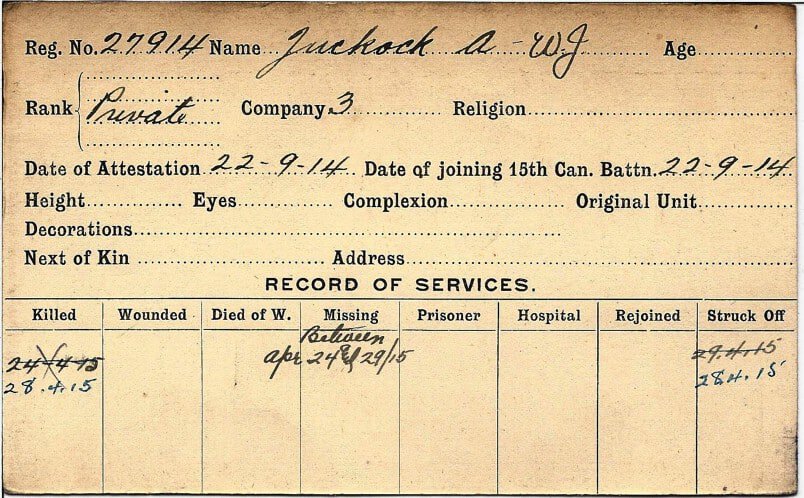 Reg. No. 27914 Name Juckock A - W.J Age
Rank Private Company 3 Religion
Date of Attestation 22-9-14 Date of joining 15th Can. Battn. 22-9-14
Height Eyes Complexion Original Unit
Decorations
Next of Kin Address
RECORD OF SERVICES.
Killed Wounded Died of W. Missing Prisoner Hospital Rejoined Struck Off
Between
24-4-15 Apr 24 & 29/15 29.4.15
28.4.15 28.4.15